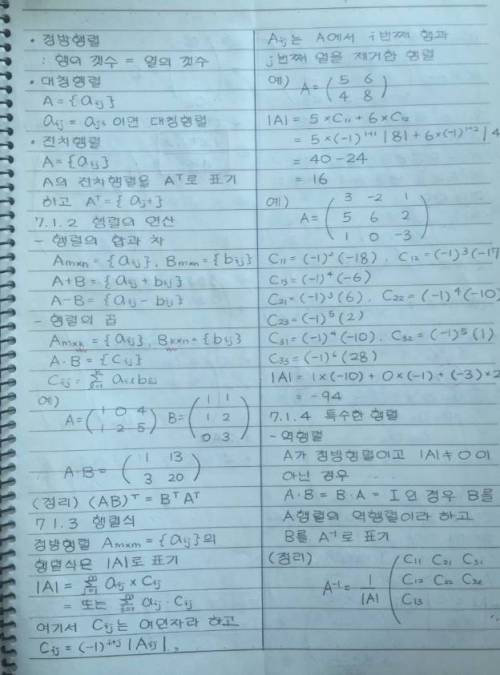 · 정방행렬
: 행의 갯수 = 열의 갯수
· 대칭행렬
A = {aij}
aij = aji 이면 대칭행렬
· 전치행렬
A = {aij}
A의 전치행렬을 Aᵀ로 표기
하고 Aᵀ = {aji}
7.1.2 행렬의 연산
- 행렬의 합과 차
Amxn = {aij}, Bmxn = {bij}
A+B = {aij + bij}
A-B = {aij - bij}
- 행렬의 곱
Amxk = {aij}, Bkxn = {bij}
A·B = {Cij}
Cij = Σ
예)
A = (1 0 4 B = (1 1
1 2 5) 1 2
0 3)
A·B = (1 13
3 20)
(정리) (AB)ᵀ = BᵀAᵀ
7.1.3 행렬식
정방행렬 Amxm = {aij}의
행렬식은 |A|로 표기
|A| = Σ aij × Cij
= 또는 Σ aij · Cij
여기서 Cij는 여인자라 하고
Cij = (-1)ⁱ⁺ʲ |Aij|,
Aij는 A에서 i번째 행과
j번째 열을 제거한 행렬
예) A = (5 6
4 8)
|A| = 5 × C11 + 6 × C12
= 5 × (-1)¹⁺¹ |8| + 6 × (-1)¹⁺² |4
= 40 - 24
= 16
예)
A = (3 -2 1
5 6 2
1 0 -3)
C11 = (-1)²(-18), C12 = (-1)³(-17
C13 = (-1)⁴(-6)
C21 = (-1)³(6), C22 = (-1)⁴(-10
C23 = (-1)⁵(2)
C31 = (-1)⁴(-10), C32 = (-1)⁵(1)
C33 = (-1)⁶(28)
|A| = 1×(-10) + 0×(-1) + (-3)×2
= -94
7.1.4 특수한 행렬
- 역행렬
A가 정방행렬이고 |A| ≠ 0 이
아닌 경우
A·B = B·A = I인 경우 B를
A행렬의 역행렬이라 하고
B를 A⁻¹로 표기
(정리)
A⁻¹ = 1/|A| (C11 C21 C31
C12 C22 C32
C13